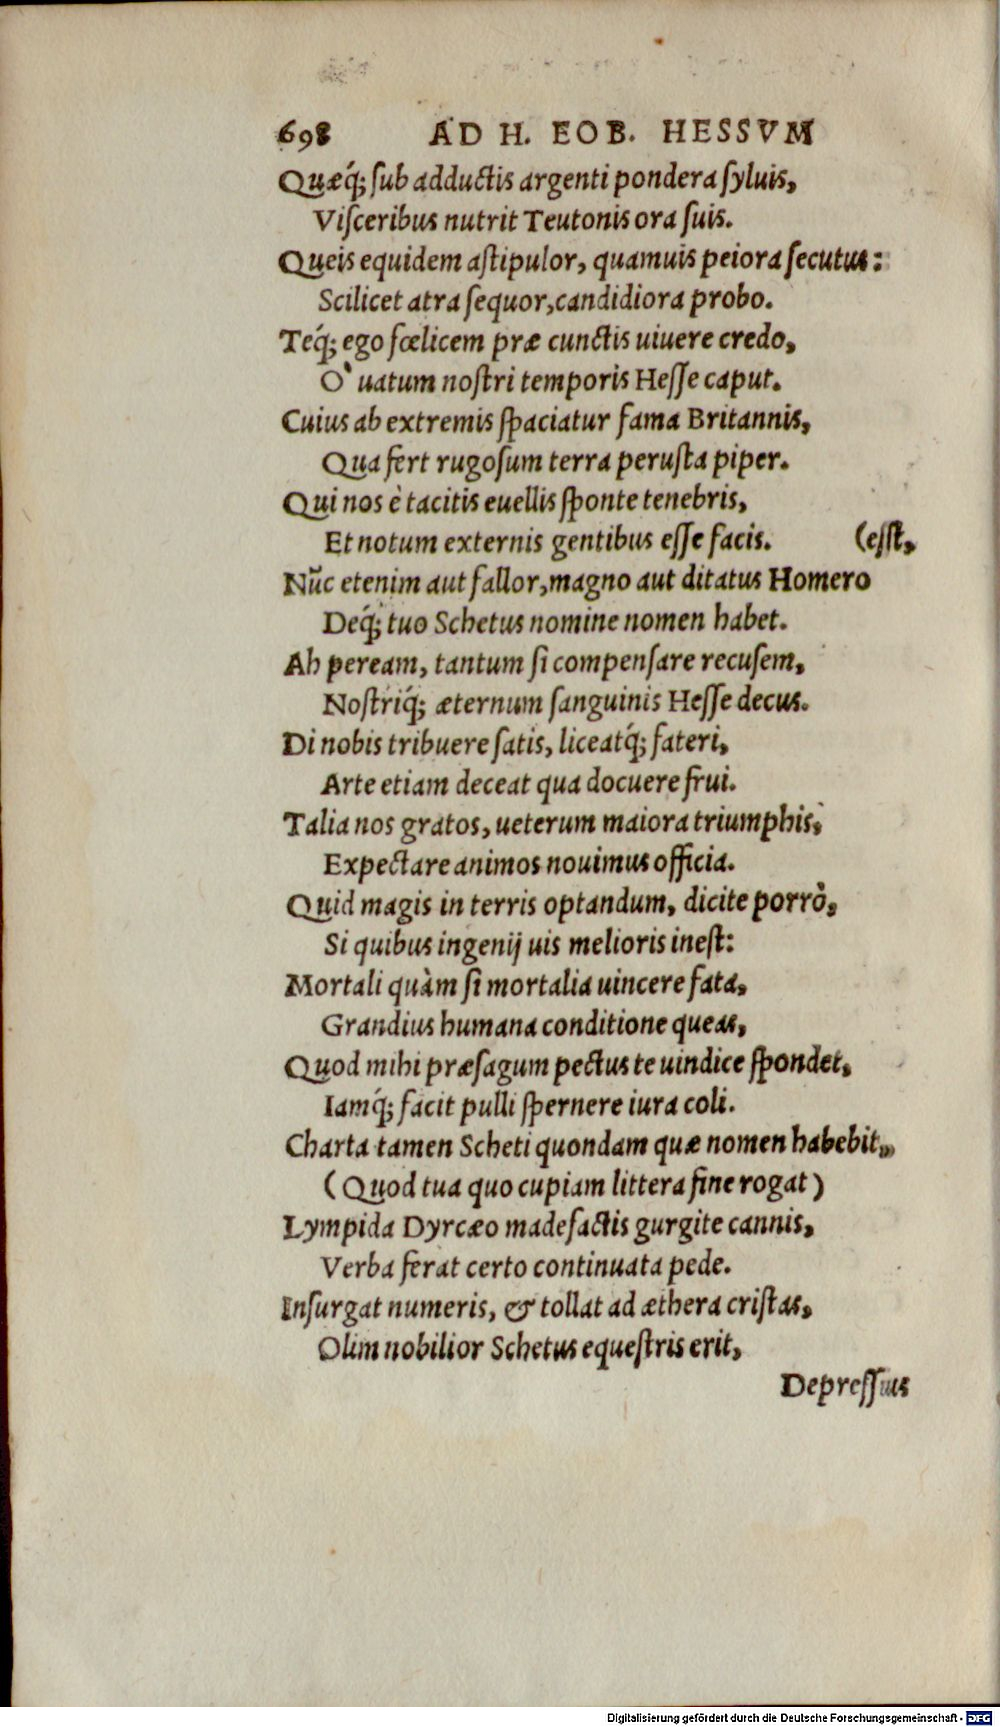 698 AD H. EOB. HESSVM
Quæq́; ſub adductis argenti pondera ſyluis,
Viſceribus nutrit Teutonis ora ſuis.
Queis equidem aſtipulor, quamuis peiora ſecutus:
Scilicet atra ſequor, candidiora probo.
Teq́; ego fœlicem præ cunctis uiuere credo,
O' uatum noſtri temporis Heſſe caput.
Cuius ab extremis ſpaciatur fama Britannis,
Qua fert rugoſum terra peruſta piper.
Qui nos è tacitis euellis ſponte tenebris,
Et notum externis gentibus eſſe facis. (eſſt,
Nũc etenim aut fallor, magno aut ditatus Homero
Deq́; tuo Schetus nomine nomen habet.
Ah peream, tantum ſi compenſare recuſem,
Noſtriq́; æternum ſanguinis Heſſe decus.
Di nobis tribuere ſatis, liceatq́; fateri,
Arte etiam deceat qua docuere frui.
Talia nos gratos, ueterum maiora triumphis,
Expectare animos nouimus officia.
Quid magis in terris optandum, dicite porrò,
Si quibus ingenij uis melioris ineſt:
Mortali quàm ſi mortalia uincere fata,
Grandius humana conditione queas,
Quod mihi præſagum pectus te uindice ſpondet,
Iamq́; facit pulli ſpernere iura coli.
Charta tamen Scheti quondam quæ nomen habebit,
(Quod tua quo cupiam littera fine rogat)
Lympida Dyrcæo madefactis gurgite cannis,
Verba ferat certo continuata pede.
Inſurgat numeris, & tollat ad æthera criſtas,
Olim nobilior Schetus equeſtris erit,
Depreſſius
Digitalisierung gefördert durch die Deutsche Forschungsgemeinschaft - DFG